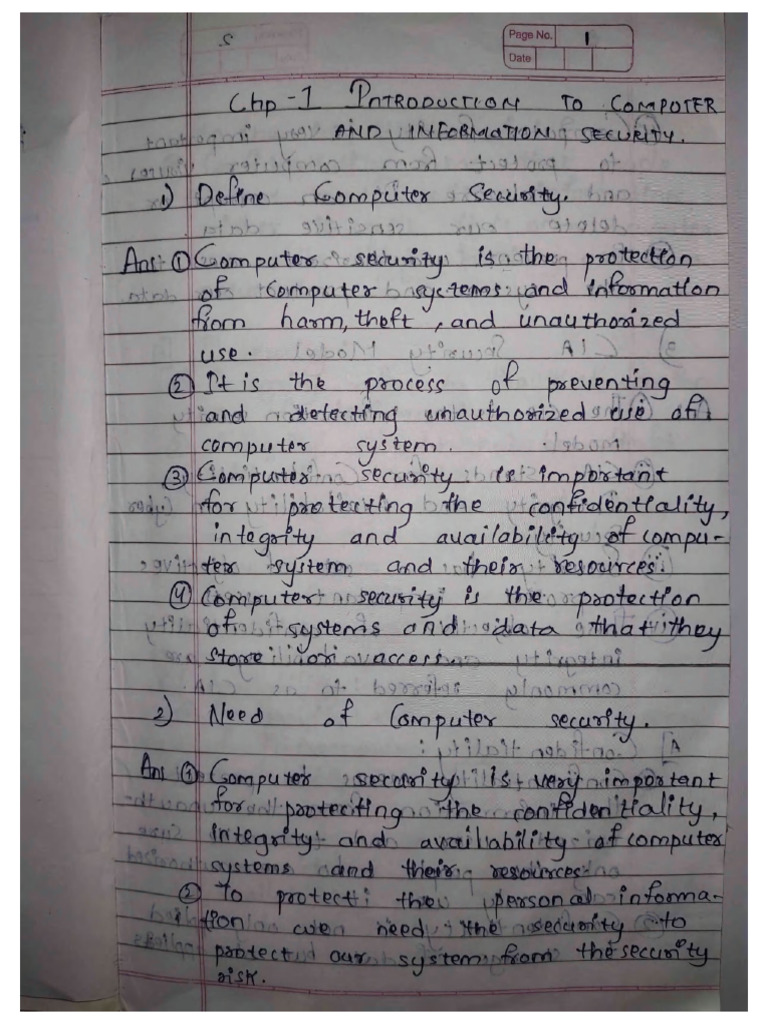 Page No. 1
Date
Chp-1 INTRODUCTION TO COMPUTER
AND INFORMATION SECURITY.
1) Define Computer Security.
Ans ① Computer security is the protection
of computer systems and information
from harm, theft, and unauthorized
use.
② It is the process of preventing
and detecting unauthorized use of
computer system.
③ Computer security is important
for protecting the confidentiality,
integrity and availability of compu-
ter system and their resources.
④ Computer security is the protection
of systems and data that they
store or access.
2) Need of Computer security.
Ans ① Computer security is very important
for protecting the confidentiality,
integrity and availability of computer
systems and their resources.
② To protect the personal informa-
tion we need the security to
protect our system from the security
risk.